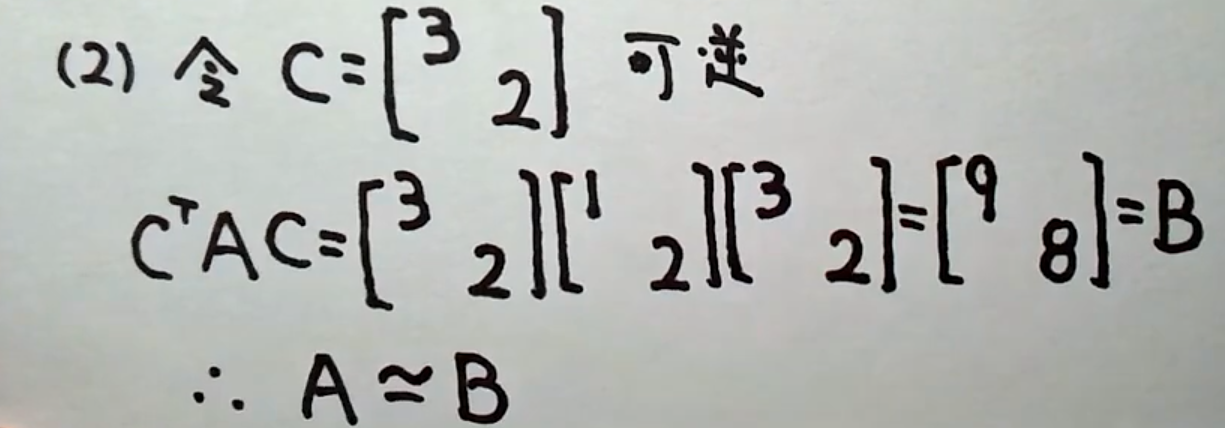 (2) 令 C=[3 2] 可逆
CᵀAC=[3 2][1 2][3 2]=[9 8]=B
∴ A≃B